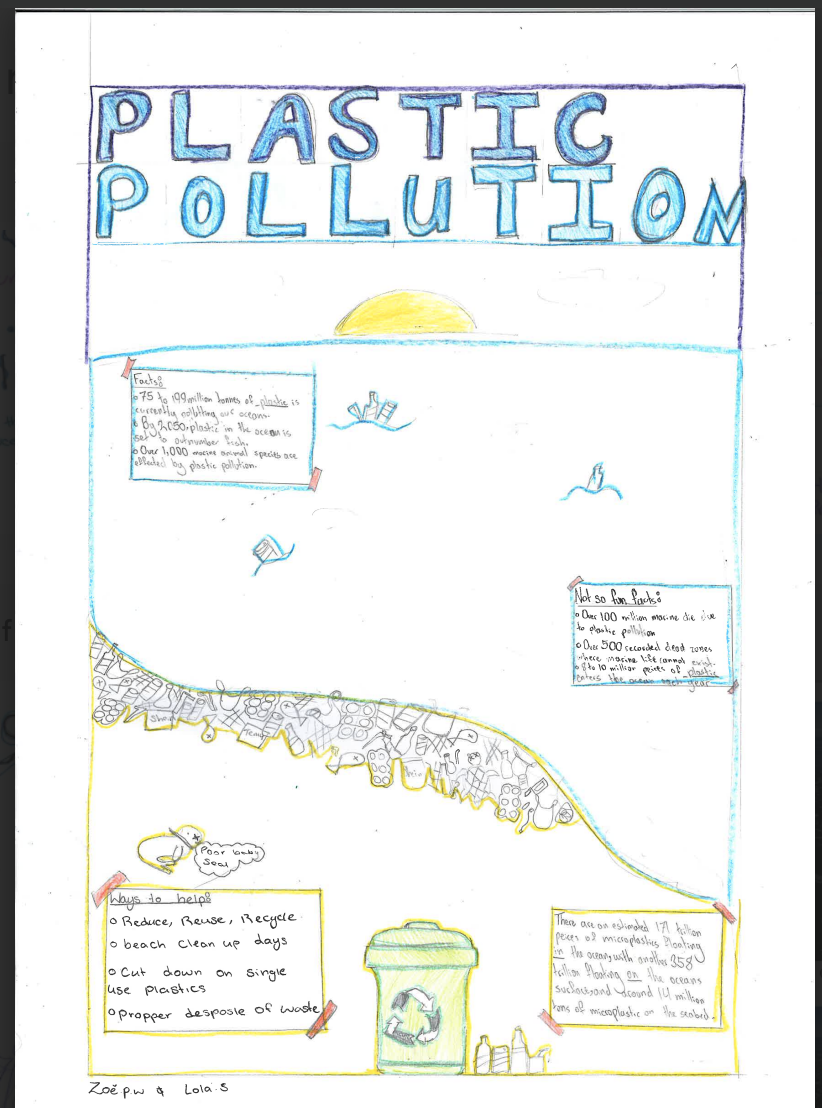 PLASTIC
POLLUTION
Facts:
75 to 199 million tonnes of plastic is
currently pollutting our oceans.
By 2050, plastic in the ocean is
set to outnumber fish.
Over 1,000 marine animal species are
effected by plastic pollution.
Not so fun facts:
Over 100 million marine die due
to plastic pollution
Over 500 recorded dead zones
where marine life cannot exist.
8 to 10 million peices of plastic
enters the ocean each year
Poor baby
Seal
Ways to help:
Reduce, Reuse, Recycle
beach Clean up days
Cut down on single
use plastics
Propper desposle of waste
There are an estimated 171 trillion
peices of microplastics floating
in the ocean, with another 358
trillion floating on the oceans
surface, and around 14 million
tons of microplastic on the seabed.
Zoë p.w & Lola.S